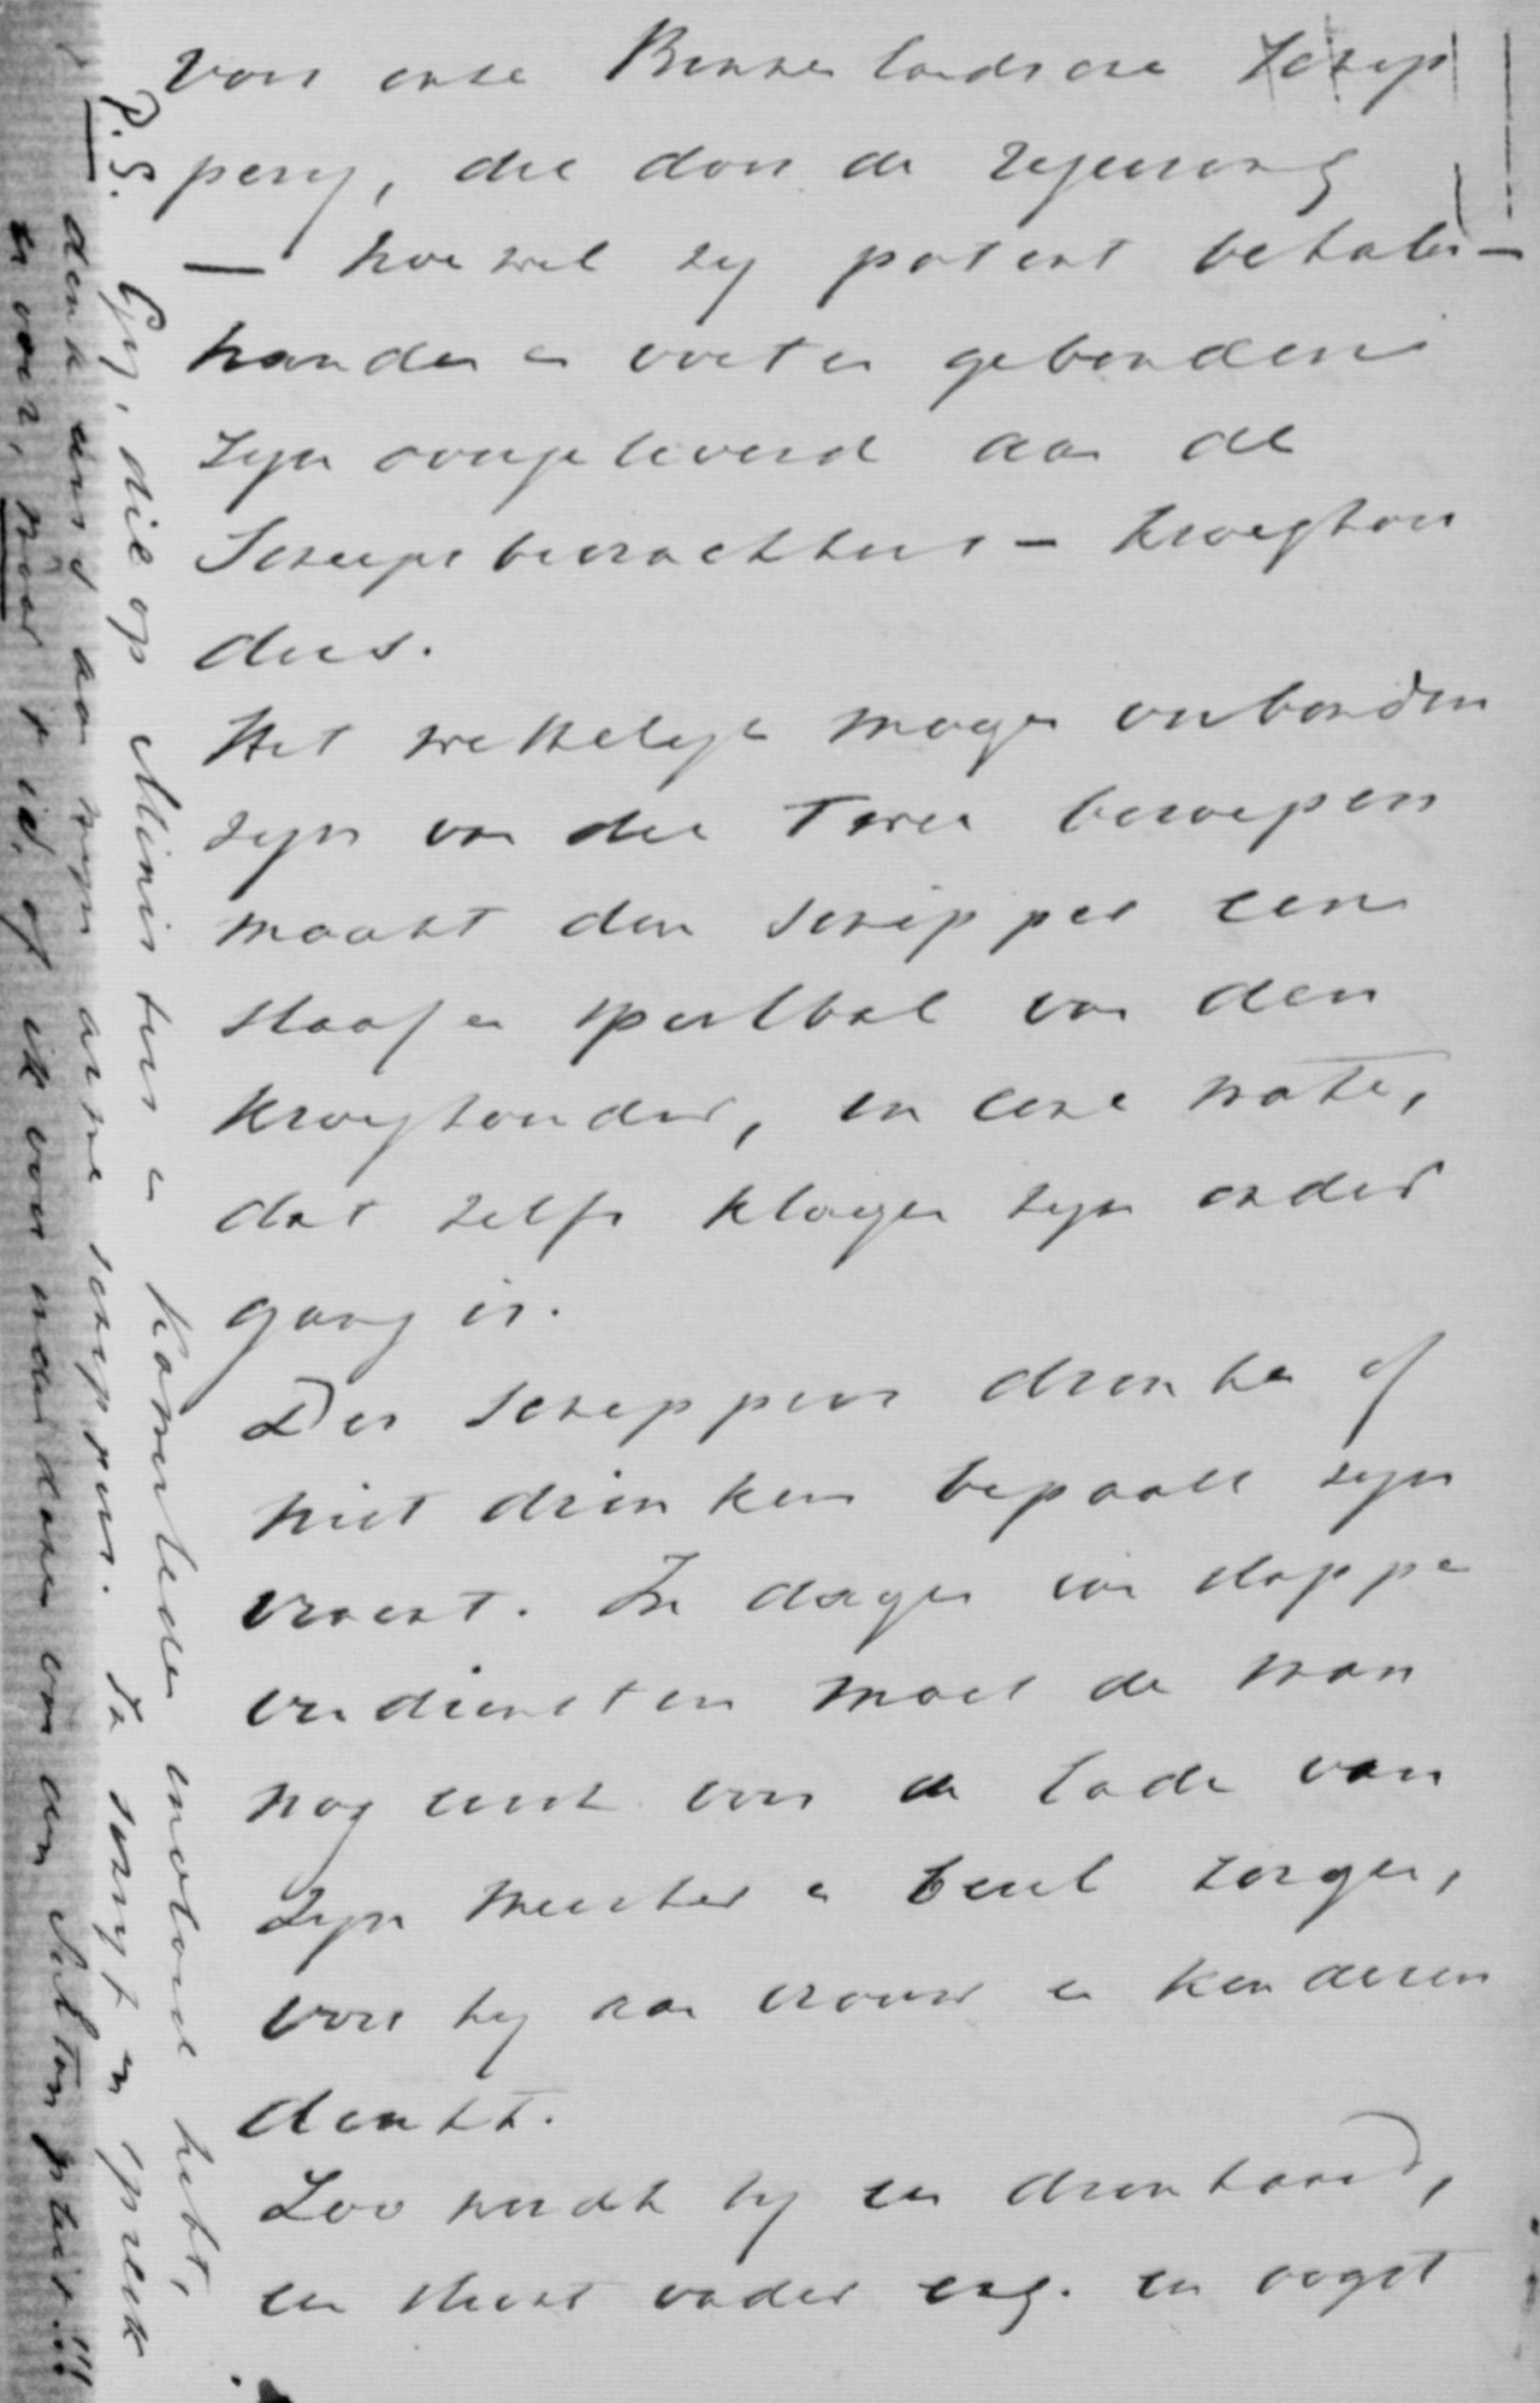 van onze Binnenlandsche Schip
pers, die door de regeering
— hoewel zij patent betalen —
handen en voeten gebonden
zijn overgeleverd aan de
Scheepsbevrachters – kroeghou
ders.
Het wettelijk mogen verbonden
zijn van die twee beroepen
maakt den schipper een
slaaf en speelbal van den
kroeghouder, in eene mate,
dat zelfs klagen zijn onder
gang is.
Des schippers drinken of
niet drinken bepaalt zijn
vracht. In dagen van slappe
verdiensten moet de man
nog eerst voor de lade van
zijn meester en beul zorgen,
voor hij aan vrouw en kinderen
denkt.
Zoo wordt hij een dronkaard,
een slecht vader enz. en oogst
P.S. Gij, die op Ministers en Kamerleden invloed hebt,
denk eens aan mijn arme schippers. Ja schrijf en spreek
er voor, maar